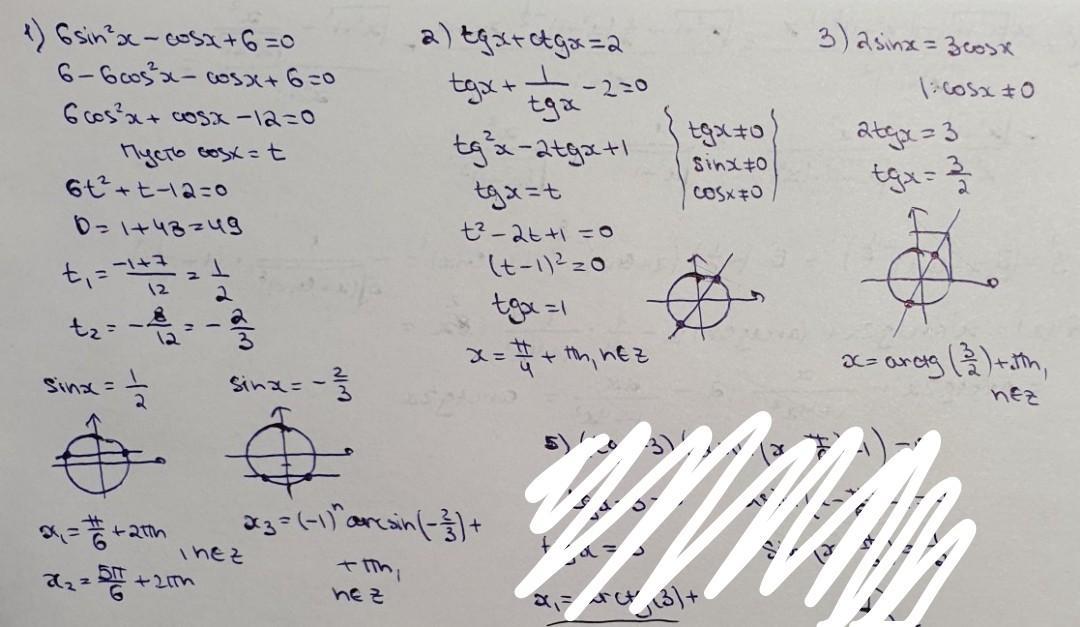 1) 6sin²x - cosx + 6 = 0
6 - 6cos²x - cosx + 6 = 0
6cos²x + cosx - 12 = 0
Пусть cosx = t
6t² + t - 12 = 0
D = 1 + 48 = 49
t₁ = (-1+7)/12 = 1/2
t₂ = -8/12 = -2/3
sinx = 1/2
sinx = -2/3
x₁ = π/6 + 2πn
, n∈Z
x₂ = 5π/6 + 2πn
x₃ = (-1)ⁿ arcsin(-2/3) +
+ πn,
n∈Z
2) tgx + ctgx = 2
tgx + 1/tgx - 2 = 0
tg²x - 2tgx + 1
{ tgx ≠ 0 }
{ sinx ≠ 0 }
{ cosx ≠ 0 }
tgx = t
t² - 2t + 1 = 0
(t - 1)² = 0
tgx = 1
x = π/4 + πn, n∈Z
3) 2sinx = 3cosx
|: cosx ≠ 0
2tgx = 3
tgx = 3/2
x = arctg(3/2) + πn,
n∈Z
5)
x₁ = arctg(3) +